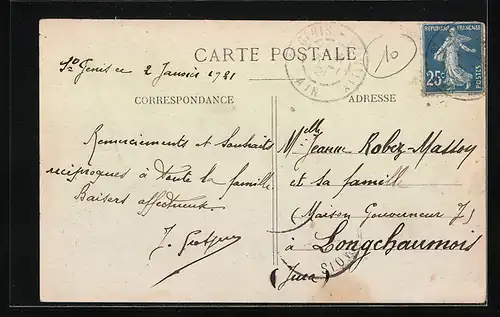 CARTE POSTALE
10
RÉPUBLIQUE FRANÇAISE
25c
POSTES
St Genis ce 2 Janvier 1921
CORRESPONDANCE
ADRESSE
Remerciements et Souhaits
réciproques à toute la famille
Baisers affectueux.
J.
Melle Jeanne Robez-Masson
et sa famille
(Maison Gouverneur J)
à Longchaumois
(Jura)
AIN